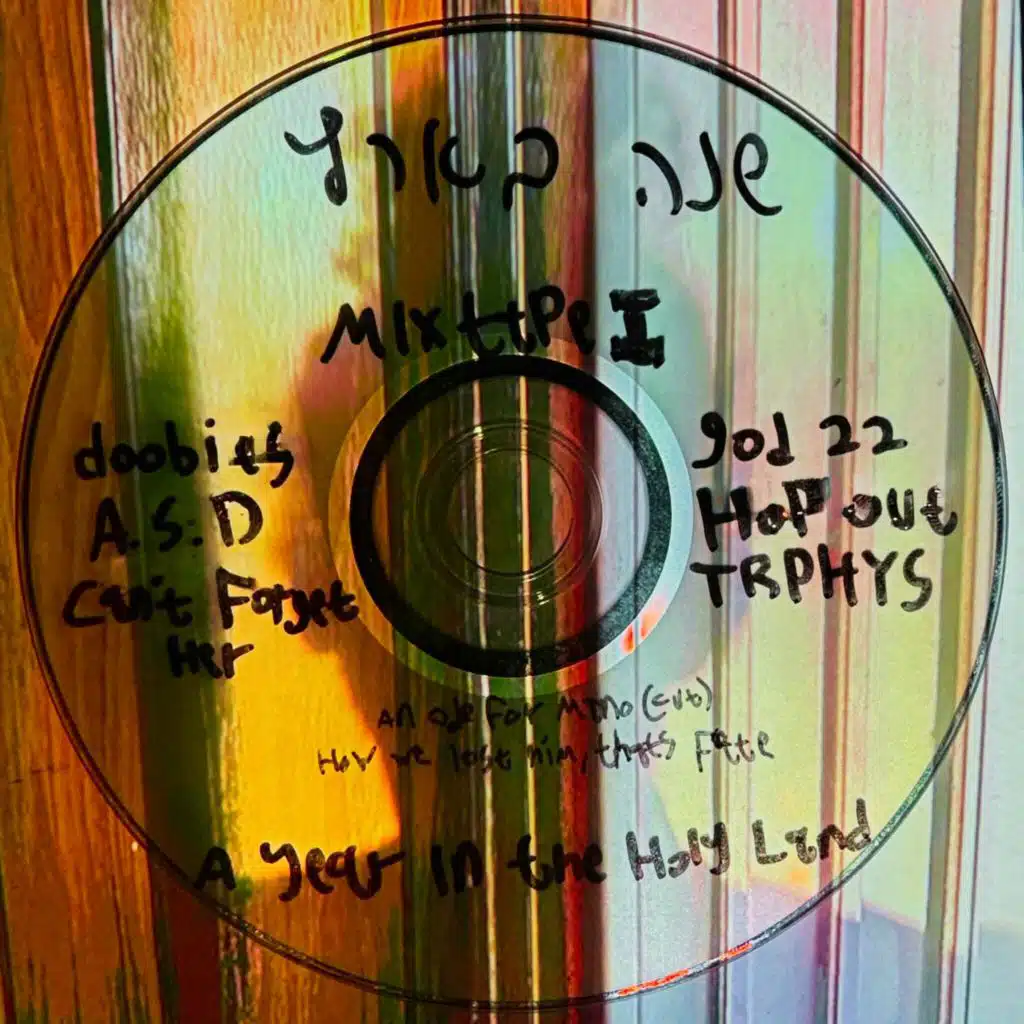 שנה בארץ
MIxttPe I
doobies
A.S.D
Can't Forget
Her
god 22
HOP out
TRPHYS
An ode For Mmo (cut)
How we lost him, thats Fate
A year In the Holy Land